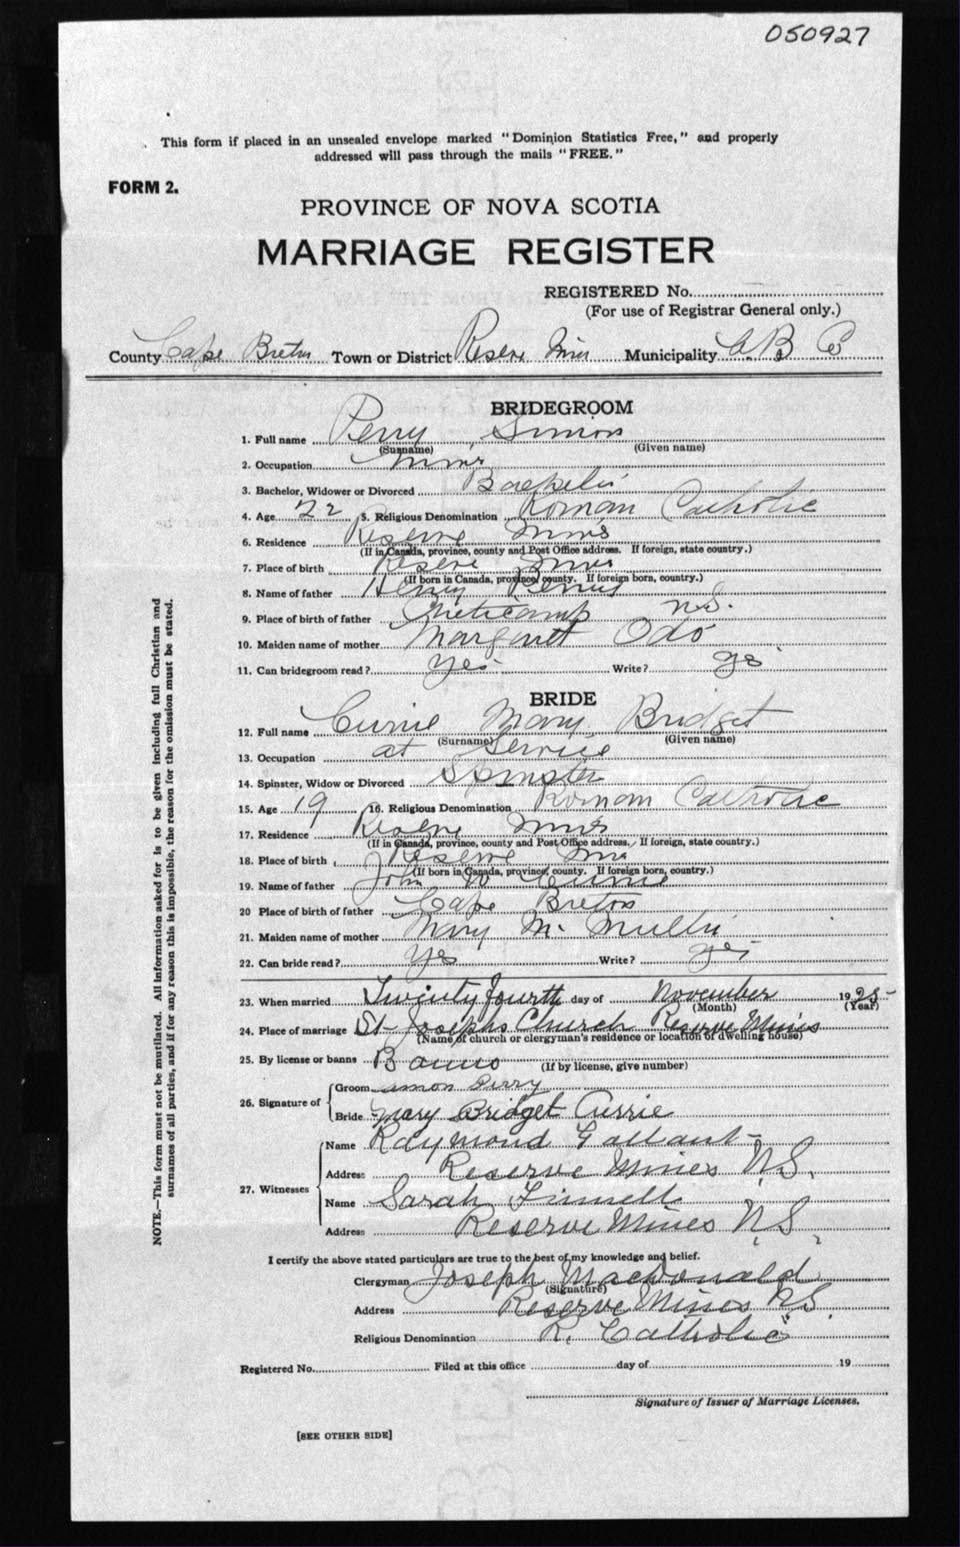 050927
This form if placed in an unsealed envelope marked "Dominion Statistics Free," and properly
addressed will pass through the mails "FREE."
FORM 2.
PROVINCE OF NOVA SCOTIA
MARRIAGE REGISTER
REGISTERED No.
(For use of Registrar General only.)
County Cape Breton Town or District Reserve Mines Municipality C. B. Co
BRIDEGROOM
1. Full name Perry, Simon
(Surname) (Given name)
2. Occupation Miner
3. Bachelor, Widower or Divorced Bachelor
4. Age 22 5. Religious Denomination Roman Catholic
6. Residence Reserve Mines
(If in Canada, province, county and Post Office address. If foreign, state country.)
7. Place of birth Reserve Mines
(If born in Canada, province, county. If foreign born, country.)
8. Name of father Henry Perry
9. Place of birth of father Cheticamp N.S.
10. Maiden name of mother Margaret Odo
11. Can bridegroom read? Yes Write? Yes
BRIDE
12. Full name Currie Mary Bridget
(Surname) (Given name)
13. Occupation at Service
14. Spinster, Widow or Divorced Spinster
15. Age 19 16. Religious Denomination Roman Catholic
17. Residence Reserve Mines
(If in Canada, province, county and Post Office address. If foreign, state country.)
18. Place of birth Reserve Mines
(If born in Canada, province, county. If foreign born, country.)
19. Name of father John W Currie
20 Place of birth of father Cape Breton
21. Maiden name of mother Mary McMullin
22. Can bride read? Yes Write? Yes
23. When married Twenty fourth day of November 1925
(Month) (Year)
24. Place of marriage St Josephs Church Reserve Mines
(Name of church or clergyman's residence or location of dwelling house)
25. By license or banns Banns (If by license, give number)
26. Signature of
Groom Simon Perry
Bride Mary Bridget Currie
27. Witnesses
Name Raymond Gallant
Address Reserve Mines N.S.
Name Sarah
Address Reserve Mines N.S.
I certify the above stated particulars are true to the best of my knowledge and belief.
Clergyman Joseph MacDonald
(Signature)
Address Reserve Mines N.S.
Religious Denomination R. Catholic
Registered No. Filed at this office day of 19
Signature of Issuer of Marriage Licenses.
[SEE OTHER SIDE]
NOTE.—This form must not be mutilated. All information asked for is to be given including full Christian and
surnames of all parties, and if for any reason this is impossible, the reason for the omission must be stated.